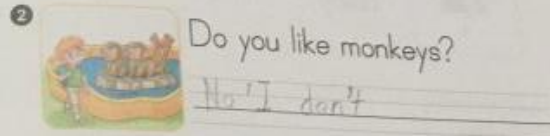 2
Do you like monkeys?
No' I don't